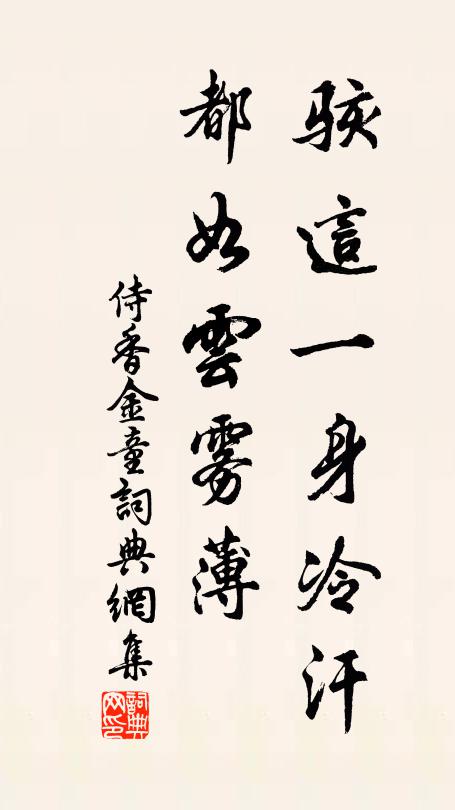 駭這一身冷汗
都如雲霧薄
侍香金童詞典網集
詞典
网印